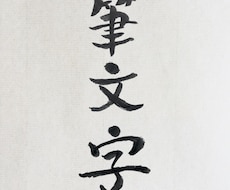 筆文字